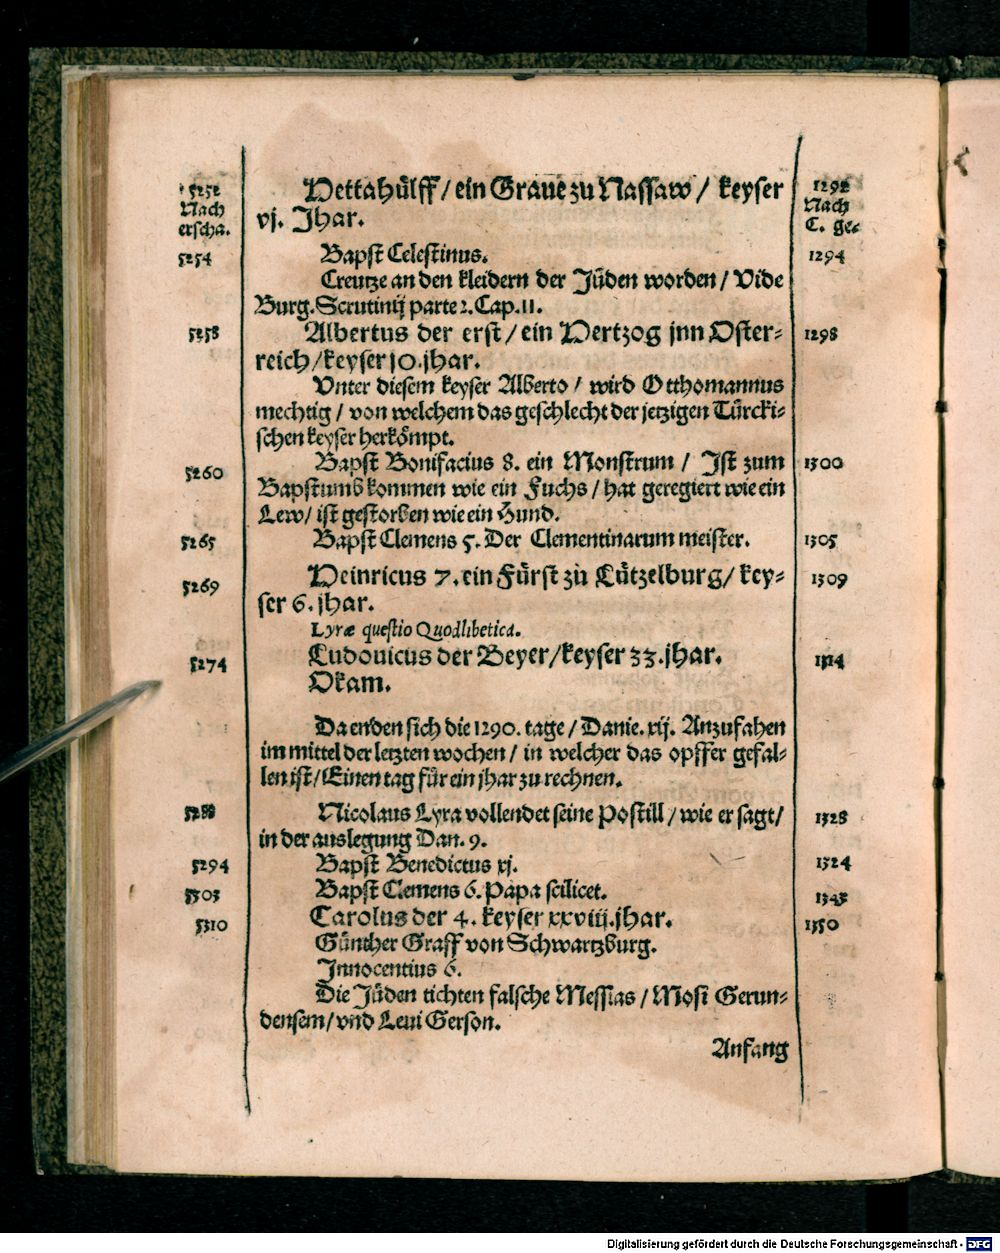 5252 Hettahülff / ein Graue zu Nassaw / keyser 1292
Nach vj. Jhar. Nach
erscha. C. ge=
5254 Bapst Celestinus. 1294
Creutze an den kleidern der Jüden worden / Vide
Burg. Scrutinij parte 2. Cap. 11.
5258 Albertus der erst / ein Hertzog jnn Oster= 1298
reich / keyser 10. jhar.
Vnter diesem keyser Alberto / wird Otthomannus
mechtig / von welchem das geschlecht der jetzigen Türcki=
schen keyser herkömpt.
5260 Bapst Bonifacius 8. ein Monstrum / Ist zum 1300
Bapstumb kommen wie ein Fuchs / hat geregiert wie ein
Lew / ist gestorben wie ein Hund.
5265 Bapst Clemens 5. Der Clementinarum meister. 1305
5269 Heinricus 7. ein Fürst zu Lützelburg / key= 1309
ser 6. jhar.
Lyræ questio Quodlibetica.
5274 Ludouicus der Beyer / keyser 33. jhar. 1314
Okam.
Da enden sich die 1290. tage / Danie. xij. Anzufahen
im mittel der letzten wochen / in welcher das opffer gefal=
len ist / Einen tag für ein jhar zu rechnen.
5288 Nicolaus Lyra vollendet seine Postill / wie er sagt / 1328
in der auslegung Dan. 9.
5294 Bapst Benedictus xj. 1324
5303 Bapst Clemens 6. Papa scilicet. 1343
5310 Carolus der 4. keyser xxviij. jhar. 1350
Günther Graff von Schwartzburg.
Innocentius 6.
Die Jüden tichten falsche Messias / Mosi Gerun=
densem / vnd Leui Gerson.
Anfang
Digitalisierung gefördert durch die Deutsche Forschungsgemeinschaft - DFG